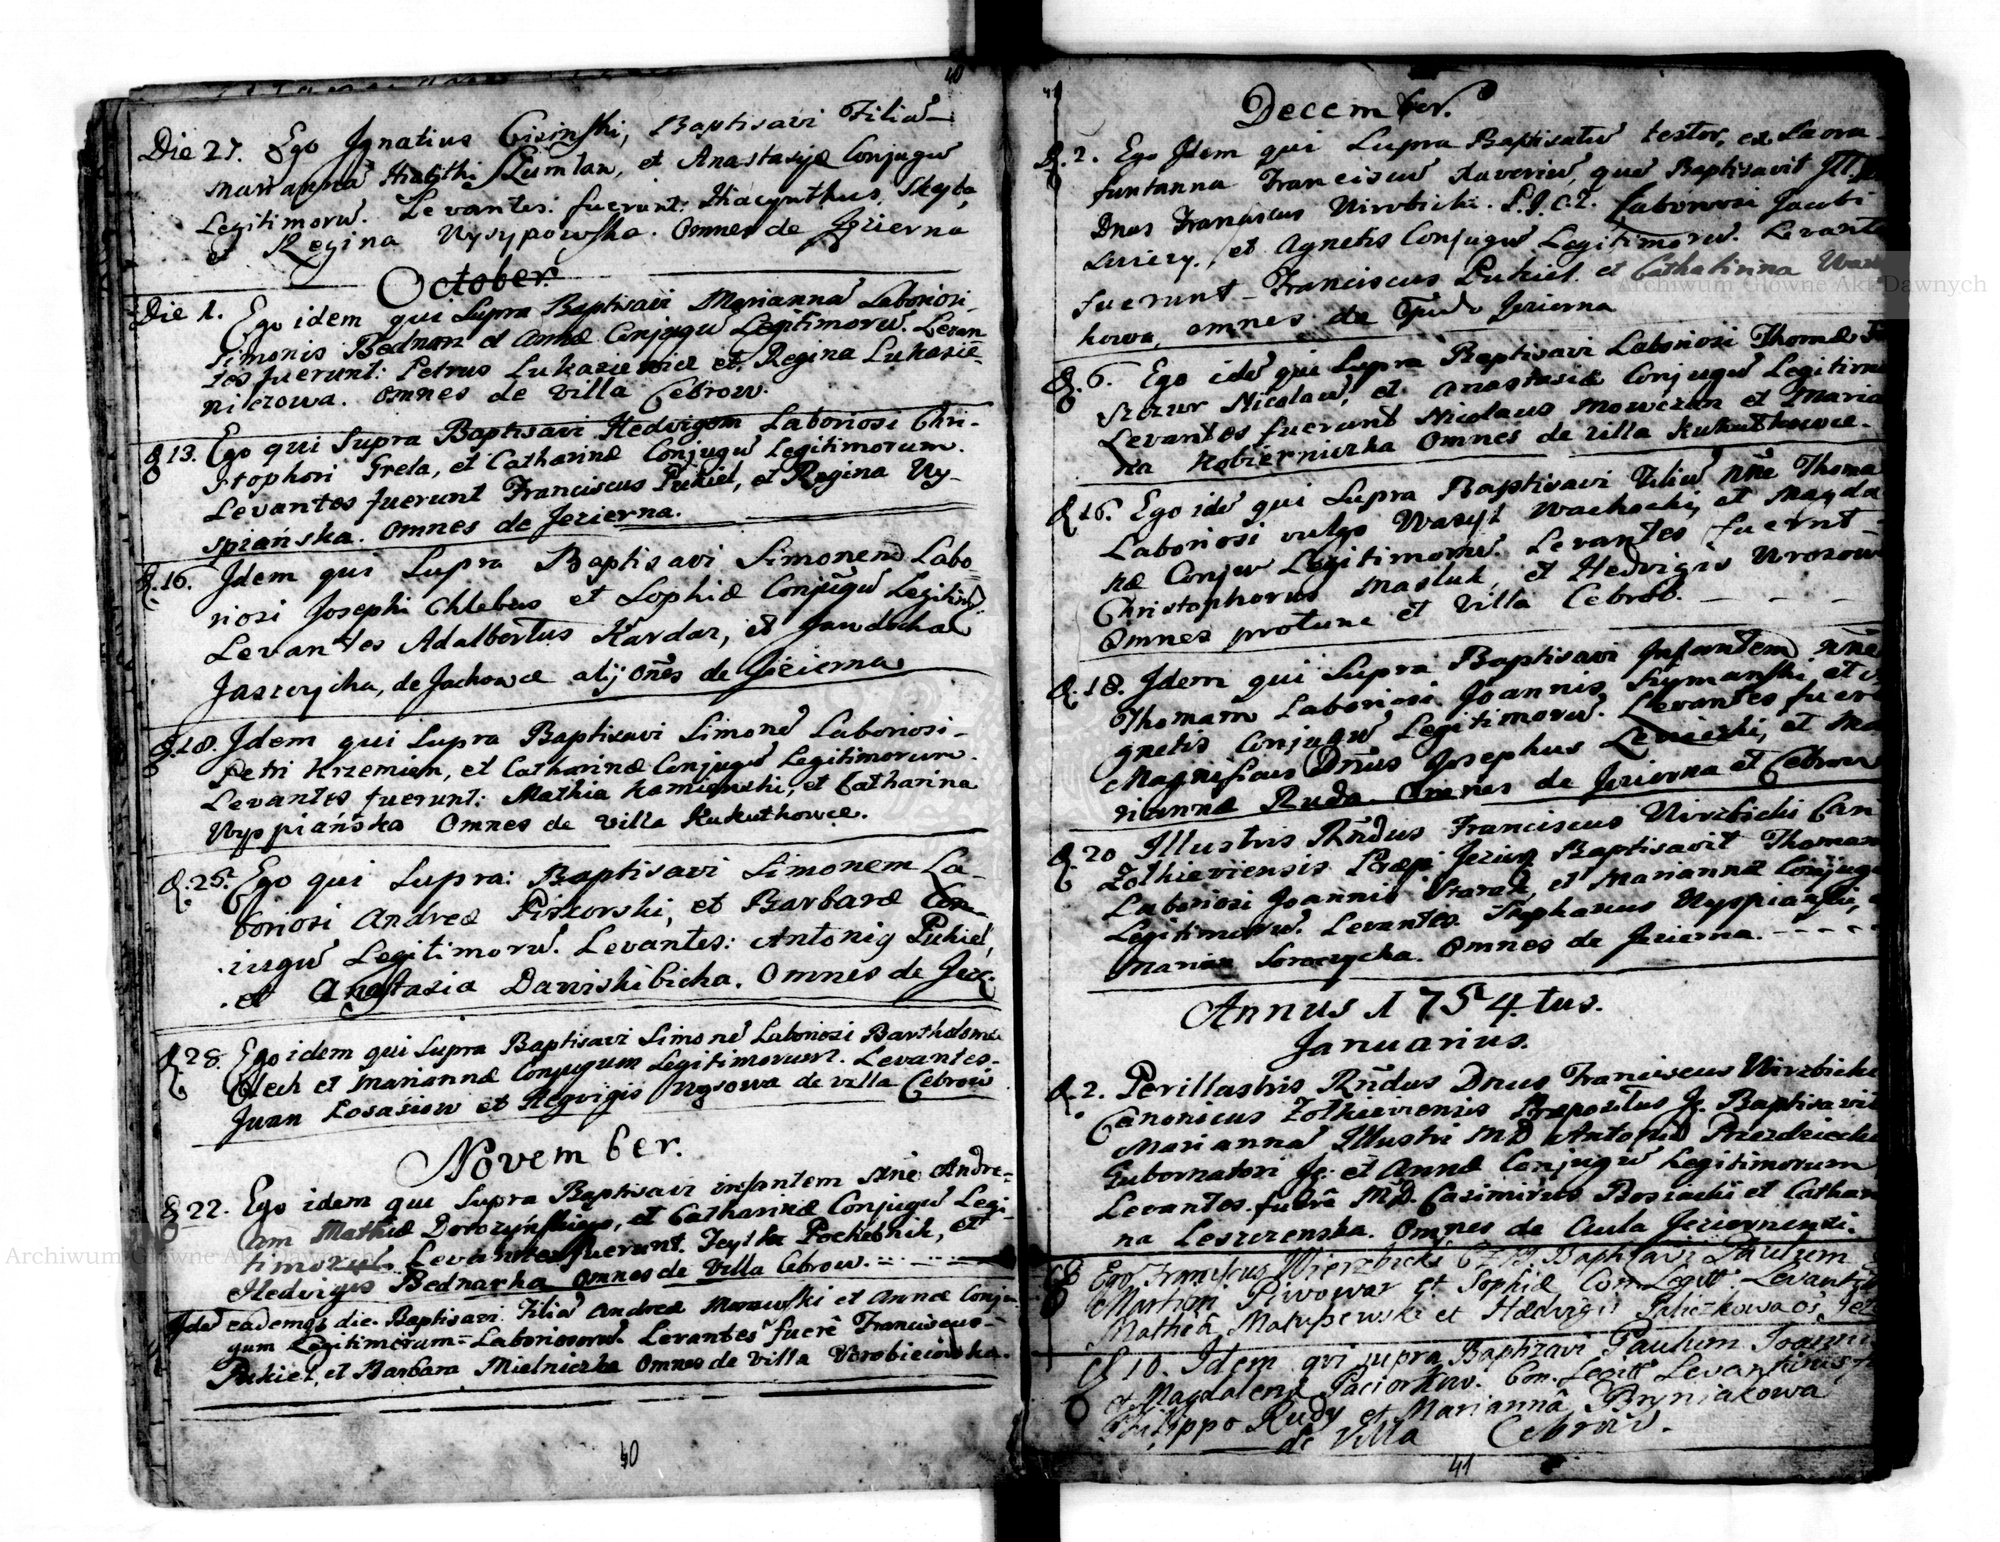 40
Die 27. Ego Ignatius Cisinski, Baptisavi Filiam
Mariannam et Anastasiæ Conjugum
Legitimorum. Levantes fuerunt: Hiacynthus Skyba,
et Regina Wysypowska. Omnes de Jezierna
October.
Die 1. Ego idem qui Supra Baptisavi Mariannam Laboriosi
Simonis Bednarz et Annæ Conjugum Legitimorum. Levan
tes fuerunt: Petrus Lukaziewicz et Regina Lukasie=
niczowa. Omnes de Villa Cebrow.
D. 13. Ego qui Supra Baptisavi Hedvigem Laboriosi Chri-
stophori Grela, et Catharinæ Conjugum Legitimorum.
Levantes fuerunt Franciscus Pukiel, et Regina Wy-
spiańska. Omnes de Jezierna.
D. 16. Idem qui Supra Baptisavi Simonem Labo=
riosi Josephi Chlebus et Sophiæ Conjugum Legitim.
Levantes Adalbertus Kardaz, et
de Jachowce alij oñes de Jezierna
D. 18. Idem qui Supra Baptisavi Simonem Laboriosi-
Petri Krzemien, et Catharinæ Conjugum Legitimorum.
Levantes fuerunt: Mathia Kamienski, et Catharina
Wyspiańska Omnes de Villa Kukutkowce.
D. 25. Ego qui Supra: Baptisavi Simonem La-
boriosi Andreæ Piskorski, et Barbaræ Con-
jugum Legitimorum. Levantes: Antonig Pukiel,
et Anastasia Dawiskibicha. Omnes de Jez.
D. 28. Ego idem qui Supra Baptisavi Simonem Laboriosi Bartholomæi
Olech et Mariannæ Conjugum Legitimorum. Levantes-
Juan Losasiow et Hegvigis de villa Cebrow
November.
D 22. Ego idem qui Supra Baptisavi infantem Nñe Andre=
am Mathiæ et Catharinæ Conjugum Legi-
timorum. Levantes fuerunt. Pochebnik, et
Hedvigis Bednarka Omnes de Villa Cebrow.
Idem eadem die Baptisavi Filiam Andreæ et Annæ Conju-
gum Legitimorum= Laboriosorum. Levantes fuere Franciscus-
Pukiel, et Barbara Mielniczka Omnes de Villa Worobieiowka.
40
41
December.
D. 2. Ego Idem qui Supra Baptisatum testor, ex Sacra
funtanna Franciscum Xaverium, quem Baptisavit Ill.
Dnus Franciscus Wirobicki. Laboriosi Jacobi
et Agnetis Conjugum Legitimorum. Levantes
fuerunt- Franciscus Pukiel. et Catharina
kowa, omnes de Jezierna
D. 6. Ego idem qui Supra Baptisavi Laboriosi Thomæ
Szczur Nicolaum, et Anastasiæ Conjugum Legitimo
Levantes fuerunt Nicolaus Mowczan et Maria
na Kobierniczka Omnes de villa Kukutkowce.
D. 16. Ego idem qui Supra Baptisavi Filium Nñe Thoma
Laboriosi vulgo Wasyl Wachocki, et Magda
næ Conjum Legitimorum. Levantes fuerunt-
Christophorus Masluk, et Hedvigis
Omnes protunc et Villa Cebrow.
D. 18. Idem qui Supra Baptisavi Infantem Nñe
Thomam Laboriosi Joannis Szymanski, et A
gnetis Conjugum Legitimorum. Levantes fuer
Magnificus Dñus Josephus et Ma
rianna Ruda. Omnes de Jezierna et Cebrow
D. 20 Illustris Rñdus Franciscus Wirzbicki Can
Zolkieviensis Præp: Jezier. Baptisavit Thomam
Laboriosi Joannis et Mariannæ Conjug
Legitimorum. Levantes. Stephanus Wyspianski,
Marian Soroczycha. Omnes de Jezierna.
Annus 1754.tus.
Januarius.
D. 2. Perillustris Rñdus Dnus Franciscus Wirzbicki
Canonicus Zolkieviensis Præpositus Je. Baptisavit
Mariannam Illustri MD Antonii Przezdziecki
Gubernatori Je: et Annæ Conjugum Legitimorum
Levantes fuere M.D. Casimirus et Cathari
na Leszczenska. Omnes de Aula Jeziernensi.
Ego Franciscus Wierzbicki Baptisavi Paulum
Martini Piwowar et Sophiæ Con Legitt. Levantib
Mathea Matusewski et Hedvigis
D 10. Idem qui supra Baptizavi Paulum Joannis
et Magdalenæ Paciorkow. Con. Legitt Levantibus
Philippo Rudy et Marianna Bryniakowa
de Villa Cebrow.
41
Archiwum Główne Akt Dawnych
Archiwum Główne Akt Dawnych